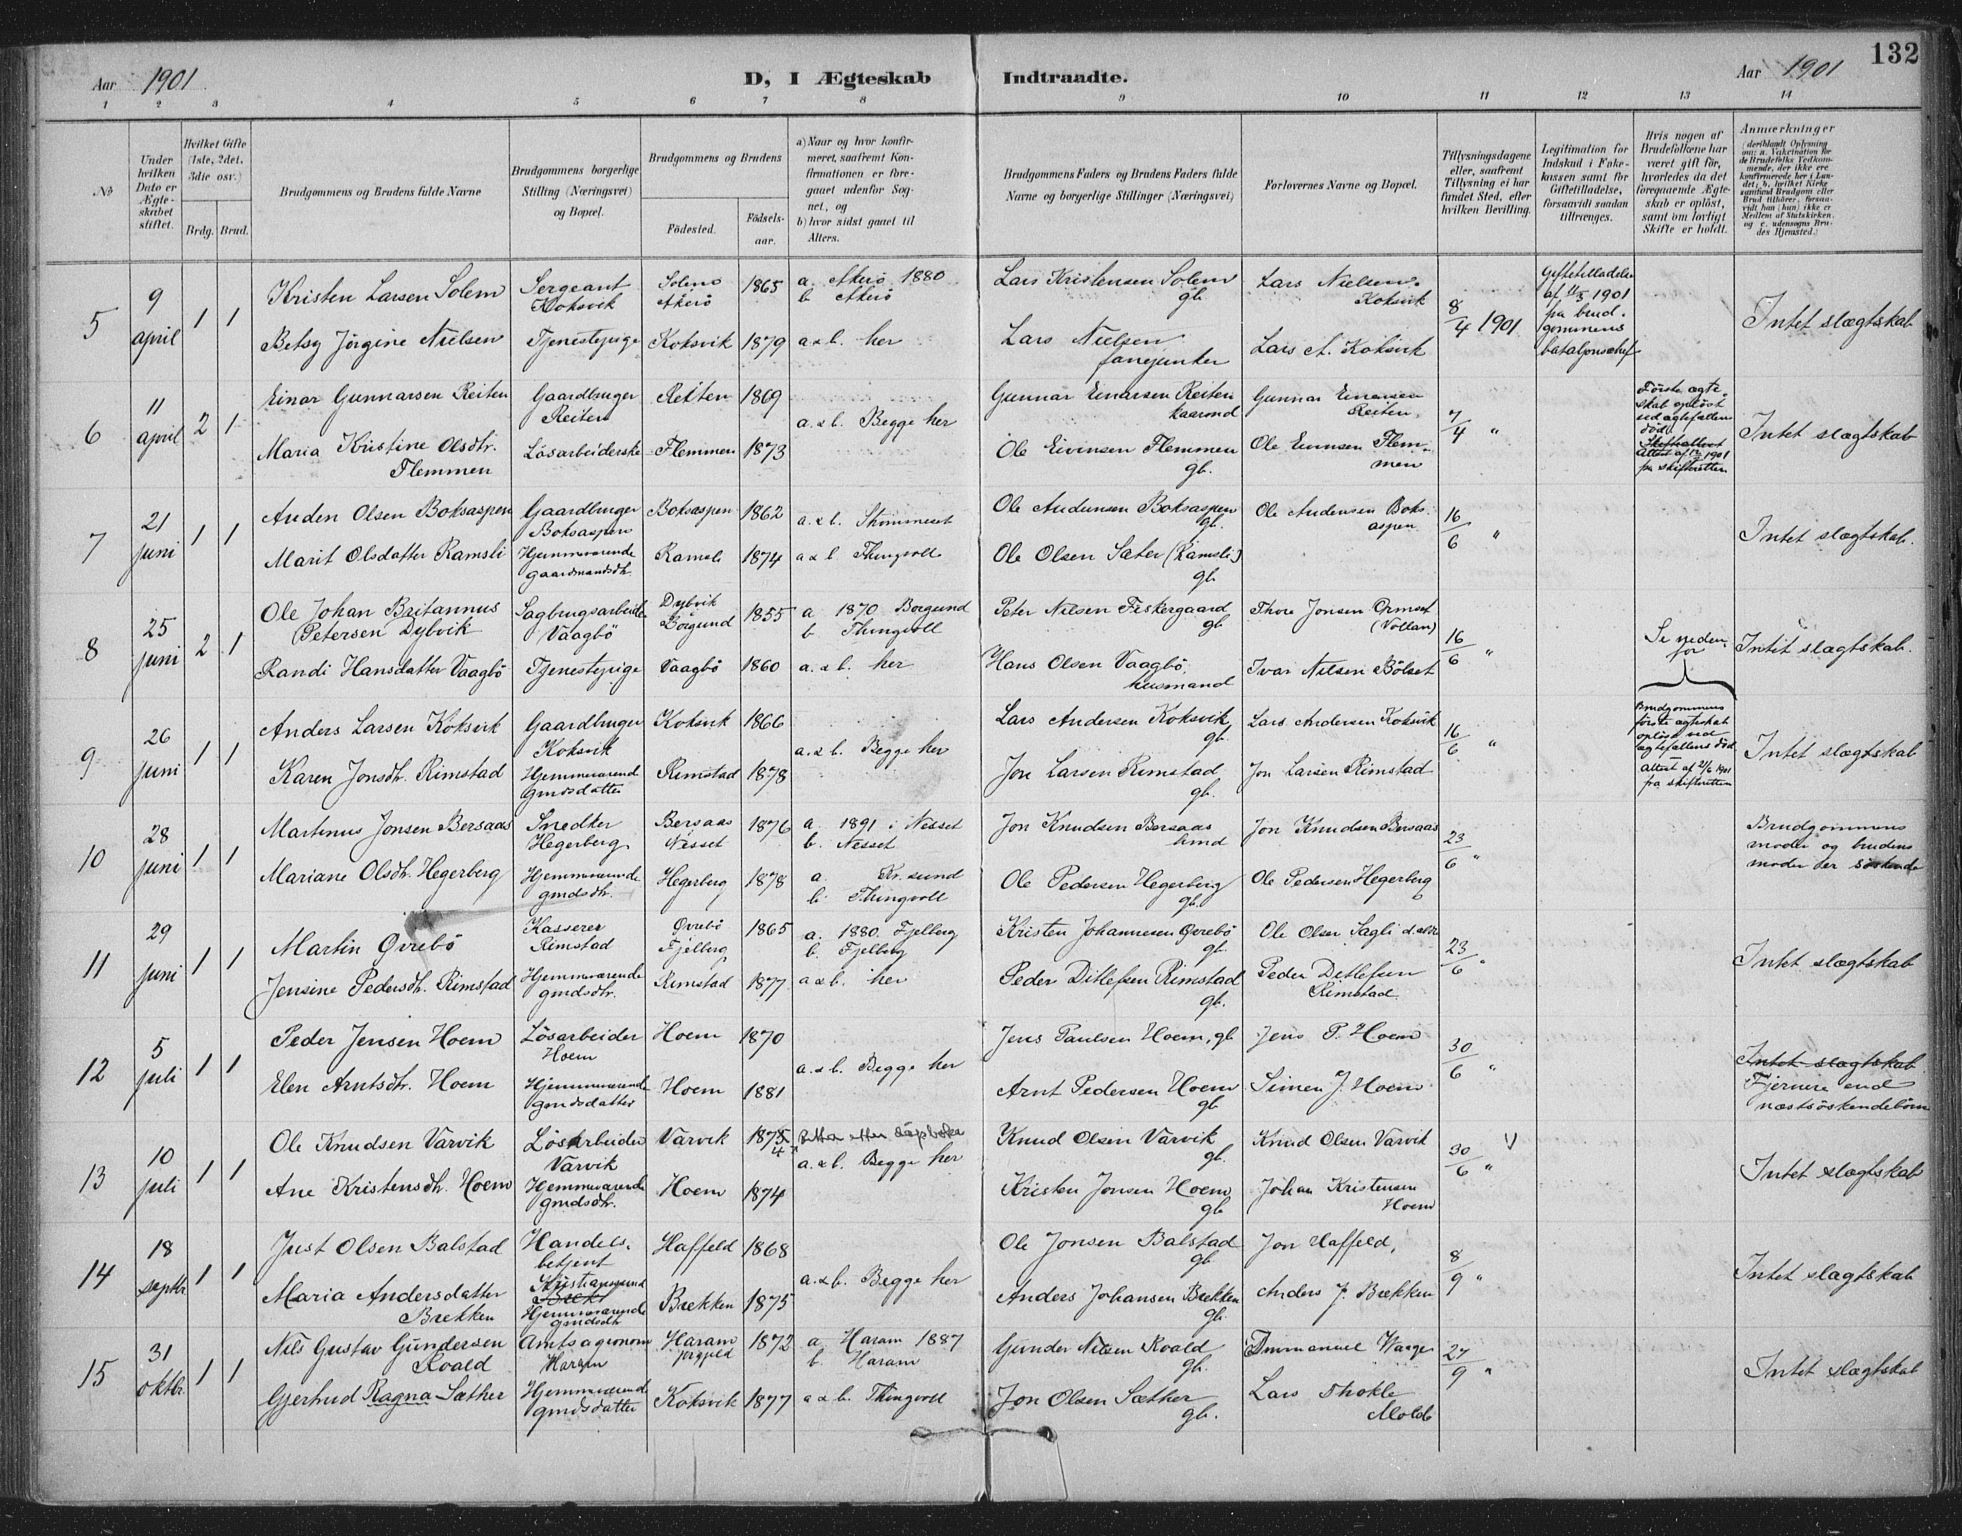 132
Aar 1901
D, I Ægteskab Indtraadte.
Aar 1901
1 2 3 4 5 6 7 8 9 10 11 12 13 14
No
Under hvilken Dato er Ægteskabet stiftet.
Hvilket Gifte (1ste, 2det, 3die osv.)
Brdg. Brud.
Brudgommens og Brudens fulde Navne
Brudgommens borgerlige Stilling (Næringsvei) og Bopæl.
Brudgommens og Brudens
Fødested.
Fødsels-aar.
a) Naar og hvor konfirmeret, saafremt Konfirmationen er foregaaet udenfor Sognet, og
b) hvor sidst gaaet til Alters.
Brudgommens Faders og Brudens Faders fulde Navne og borgerlige Stillinger (Næringsvei)
Forlovernes Navne og Bopæl.
Tillysningsdagene eller, saafremt Tillysning ei har fundet Sted, efter hvilken Bevilling.
Legitimation for Indskud i Enkekassen samt for Giftetilladelse, forsaavidt saadan tiltrænges.
Hvis nogen af Brudefolkene har været gift før, hvorledes da det foregaaende Ægteskab er opløst, samt om lovligt Skifte er holdt.
Anmerkninger
(deriblandt Oplysning om: a. Vakcination for de Brudefolks Vedkommende, der ikke ere konfirmerede her i Landet; b. hvilket Kirkesamfund Brudgom eller Brud tilhører, forsaavidt han (hun) ikke er Medlem af Statskirken, og c. udensogns Brudes Hjemsted.)
5
9 april
1 1
Kristen Larsen Solem
Sergeant
Koksvik
Solem
Akerö
1865
a. Akerö 1880
b. Akerö
Lars Kristensen Solem
gb.
Lars Nielsen
Koksvik
8/4 1901
Giftetilladelse
1901
fra brud-
gommens
bataljonschef
Intet slægtskab
Betsy Jörgine Nielsen
Tjenestepige
Koksvik
1879
a & b. her
Lars Nielsen
fanejunker
Lars A. Koksvik
6
11 april
2 1
Einar Gunnarsen Reiten
Gaardbruger
Reiten
Reiten
1869
a. & b. Begge her
Gunnar Einarsen Reiten
kaarmd
Gunnar Einarsen
Reiten
7/4 "
Første ægte-
skab opløst
ved ægtefællens
død.
1901
fra skifteretten
Intet slægtskab
Maria Kristine Olsdtr.
Flemmen
Lösarbeiderske
Flemmen
1873
Ole Eivinsen Flemmen
gb.
Ole Eivinsen Flem-
men
7
21 juni
1 1
Anders Olsen Boksaspen
Gaardbruger
Boksaspen
Boksaspen
1862
a. & b. Strömmeset
Ole Andersen Boksaspen
gb.
Ole Andersen Boks-
aspen
16/6 "
Intet slægtskab.
Marit Olsdatter Ramsli
Hjemmeværende
gaardmandsdtr.
Ramsli
1874
a & b. Thingvoll
Ole Olsen Sæter (Ramsli)
gb.
8
25 juni
2 1
Ole Johan Britannus
Petersen Dybvik
Sagbrugsarbeider
Vaagbö
Dybvik
Borgund
1855
a. 1870 Borgund
b. Thingvoll
Peter Nilsen Fiskergaard
gb.
Thore Jonsen Ormset
(Vollan)
16/6 "
Se neden-
for
Intet slægtskab.
Randi Hansdatter Vaagbö
Tjenestepige
Vaagbö
1860
a. & b. her
Hans Olsen Vaagbö,
husmand
Ivar Nilsen Bölset
9
26 juni
1 1
Anders Larsen Koksvik
Gaardbruger
Koksvik
Koksvik
1866
a. & b. Begge her
Lars Andersen Koksvik
gb.
Lars Andersen Koksvik
16/6 "
Brudgommens
første ægteskab
opløst ved
ægtefællens död
Attest af 2/6 1901
fra skifteretten
Intet slægtskab
Karen Jonsdtr. Rimstad
Hjemmeværend
gmdsdatter
Rimstad
1878
Jon Larsen Rimstad
gb.
Jon Larsen Rimstad
10
28 juni
1 1
Martinus Jonsen Bersaas
Snedker
Hegerberg
Bersaas
Nesset
1876
a. 1891 i Nesset
b. Nesset
Jon Knudsen Bersaas
Jon Knudsen Bersaas
23/6 "
Brudgommens
moder og brudens
moder er söskende
Mariane Olsdtr. Hegerberg
Hjemmeværende
gmdsdtr.
Hegerberg
1878
a. Kr.sund
b. Thingvoll
Ole Pedersen Hegerberg
gb.
Ole Pedersen Hegerberg
11
29 juni
1 1
Martin Øvrebö
Kasserer
Rimstad
Øvrebö
Fjelberg
1865
a. 1880. Fjelberg
b. Fjelberg
Kristen Johannesen Øvrebö
gb.
Ole Olsen Sagli
23/6 "
Intet slægtskab
Jensine Pedersdtr. Rimstad
Hjemmeværende
gmdsdtr.
Rimstad
1877
a & b. her
Peder Ditlefsen Rimstad
gb.
Peder Ditlefsen
Rimstad
12
5 juli
1 1
Peder Jensen Hoem
Lösarbeider
Hoem
Hoem
1870
a. & b. Begge her
Jens Paulsen Hoem, gb
Jens P. Hoem
30/6 "
Intet slægtskab
Fjernere end
næstsöskendebörn
Elen Arntsdtr. Hoem
Hjemmeværende
gmdsdatter
Hoem
1881
Arnt Pedersen Hoem
gb.
Simen J. Hoem
13
10 juli
1 1
Ole Knudsen Varvik
Lösarbeider
Varvik
Varvik
1875
4
a. & b. Begge her
Knud Olsen Varvik
gb.
Knud Olsen Varvik
30/6 "
Intet slægtskab
Ane Kristensdtr. Hoem
Hjemmeværende
gmdsdtr.
Hoem
1874
Kristen Jonsen Hoem
gb
Johan Kristensen
Hoem
14
18 septbr
1 1
Just Olsen Balstad
Handels-
betjent
Kristiansund
Haffeld
1868
a. & b. Begge her
Ole Jonsen Balstad
gb.
Jon Haffeld,
8/9 "
Intet slægtskab
Maria Andersdatter
Brekken
Hjemmeværende
gmdsdtr
Brekken
1875
Anders Johansen Brekken
gb.
Anders J. Brekken
15
31 oktbr
1 1
Nils Gustav Gundersen
Roald
Amtsagronom
Haram
Haram
prgjeld
1872
a. Haram 1887
b. Haram
Gunder Nilsen Roald
gb.
Immanuel Waage
27/9 "
Intet slægtskab
Gjertrud Ragna Sæther
Hjemmeværend
gmdsdatter
Koksvik
1877
a & b. Thingvoll
Jon Olsen Sæther
gb.
Lars Thokle
Molde